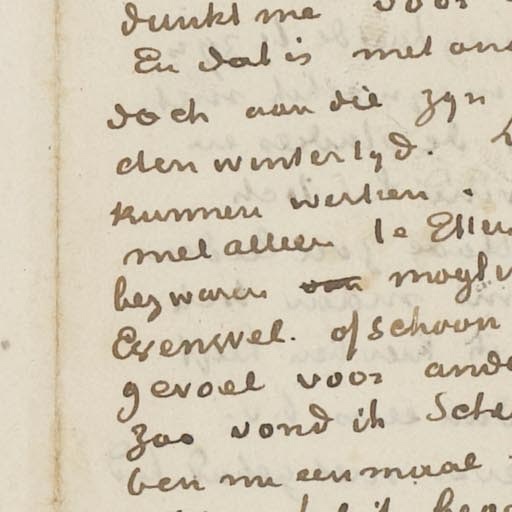 dunkt me voor
En dat is met and
doch aan die zyn
den wintertyd.
kunnen werken.
met alleen te Etten
bezwaren van mogly
Evenwel. ofschoon
gevoel voor ande
zoo vond ik Sche
ben nu eenmaal